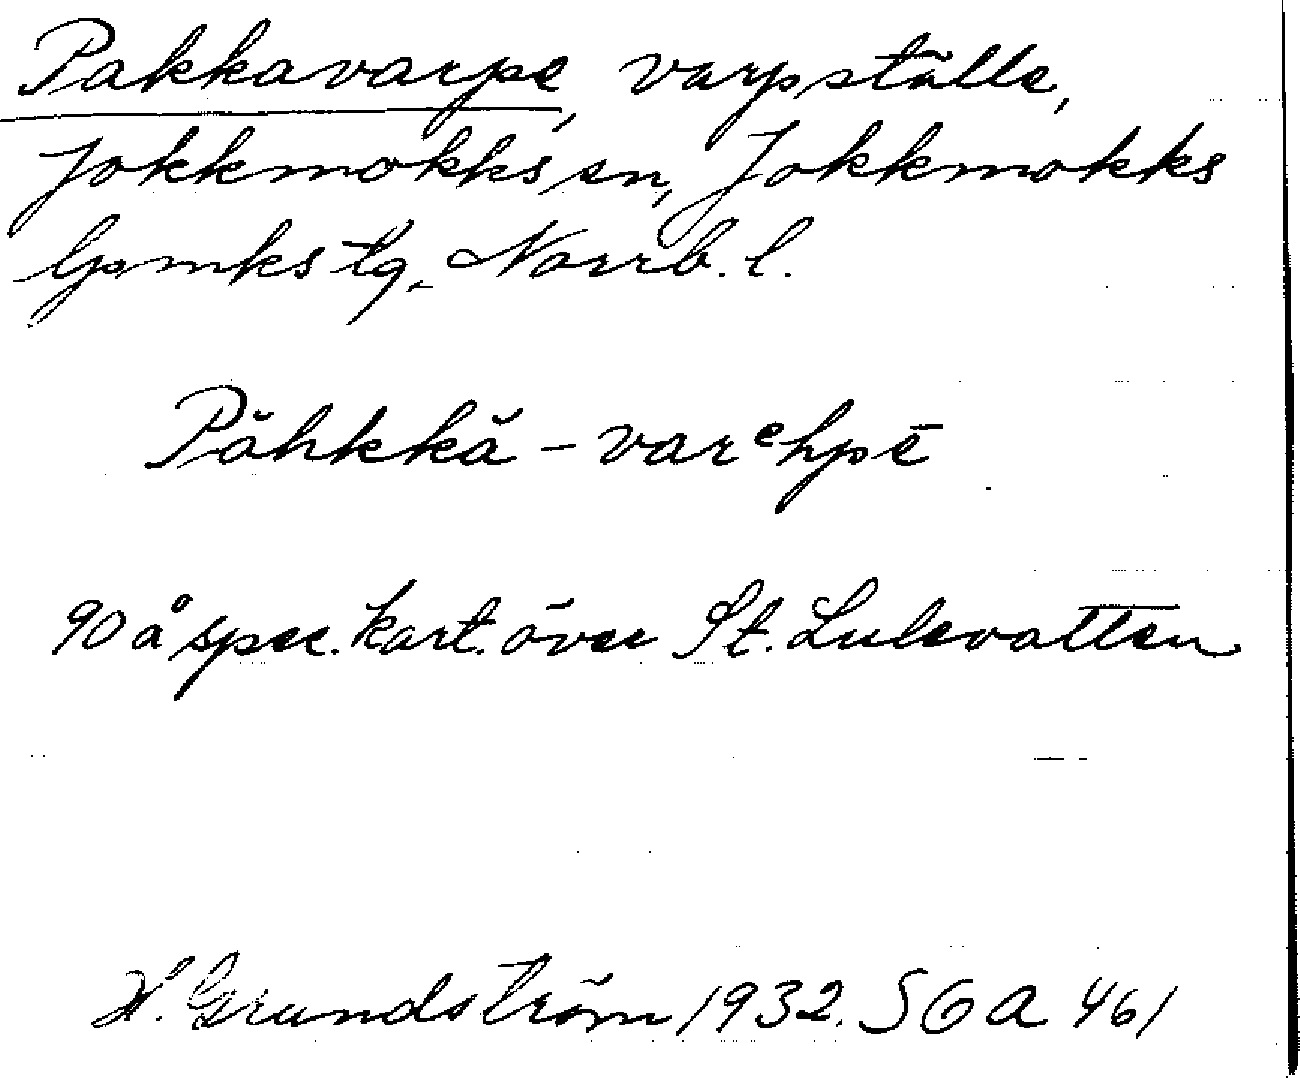 Pakkavarpe, varpställe,
Jokkmokks sn, Jokkmokks
lpmks tg, Norrb. l.
Păhkkă - varᵉhpē
90 å spec. kart. över St. Lulevatten
H. Grundström 1932. SOA 461